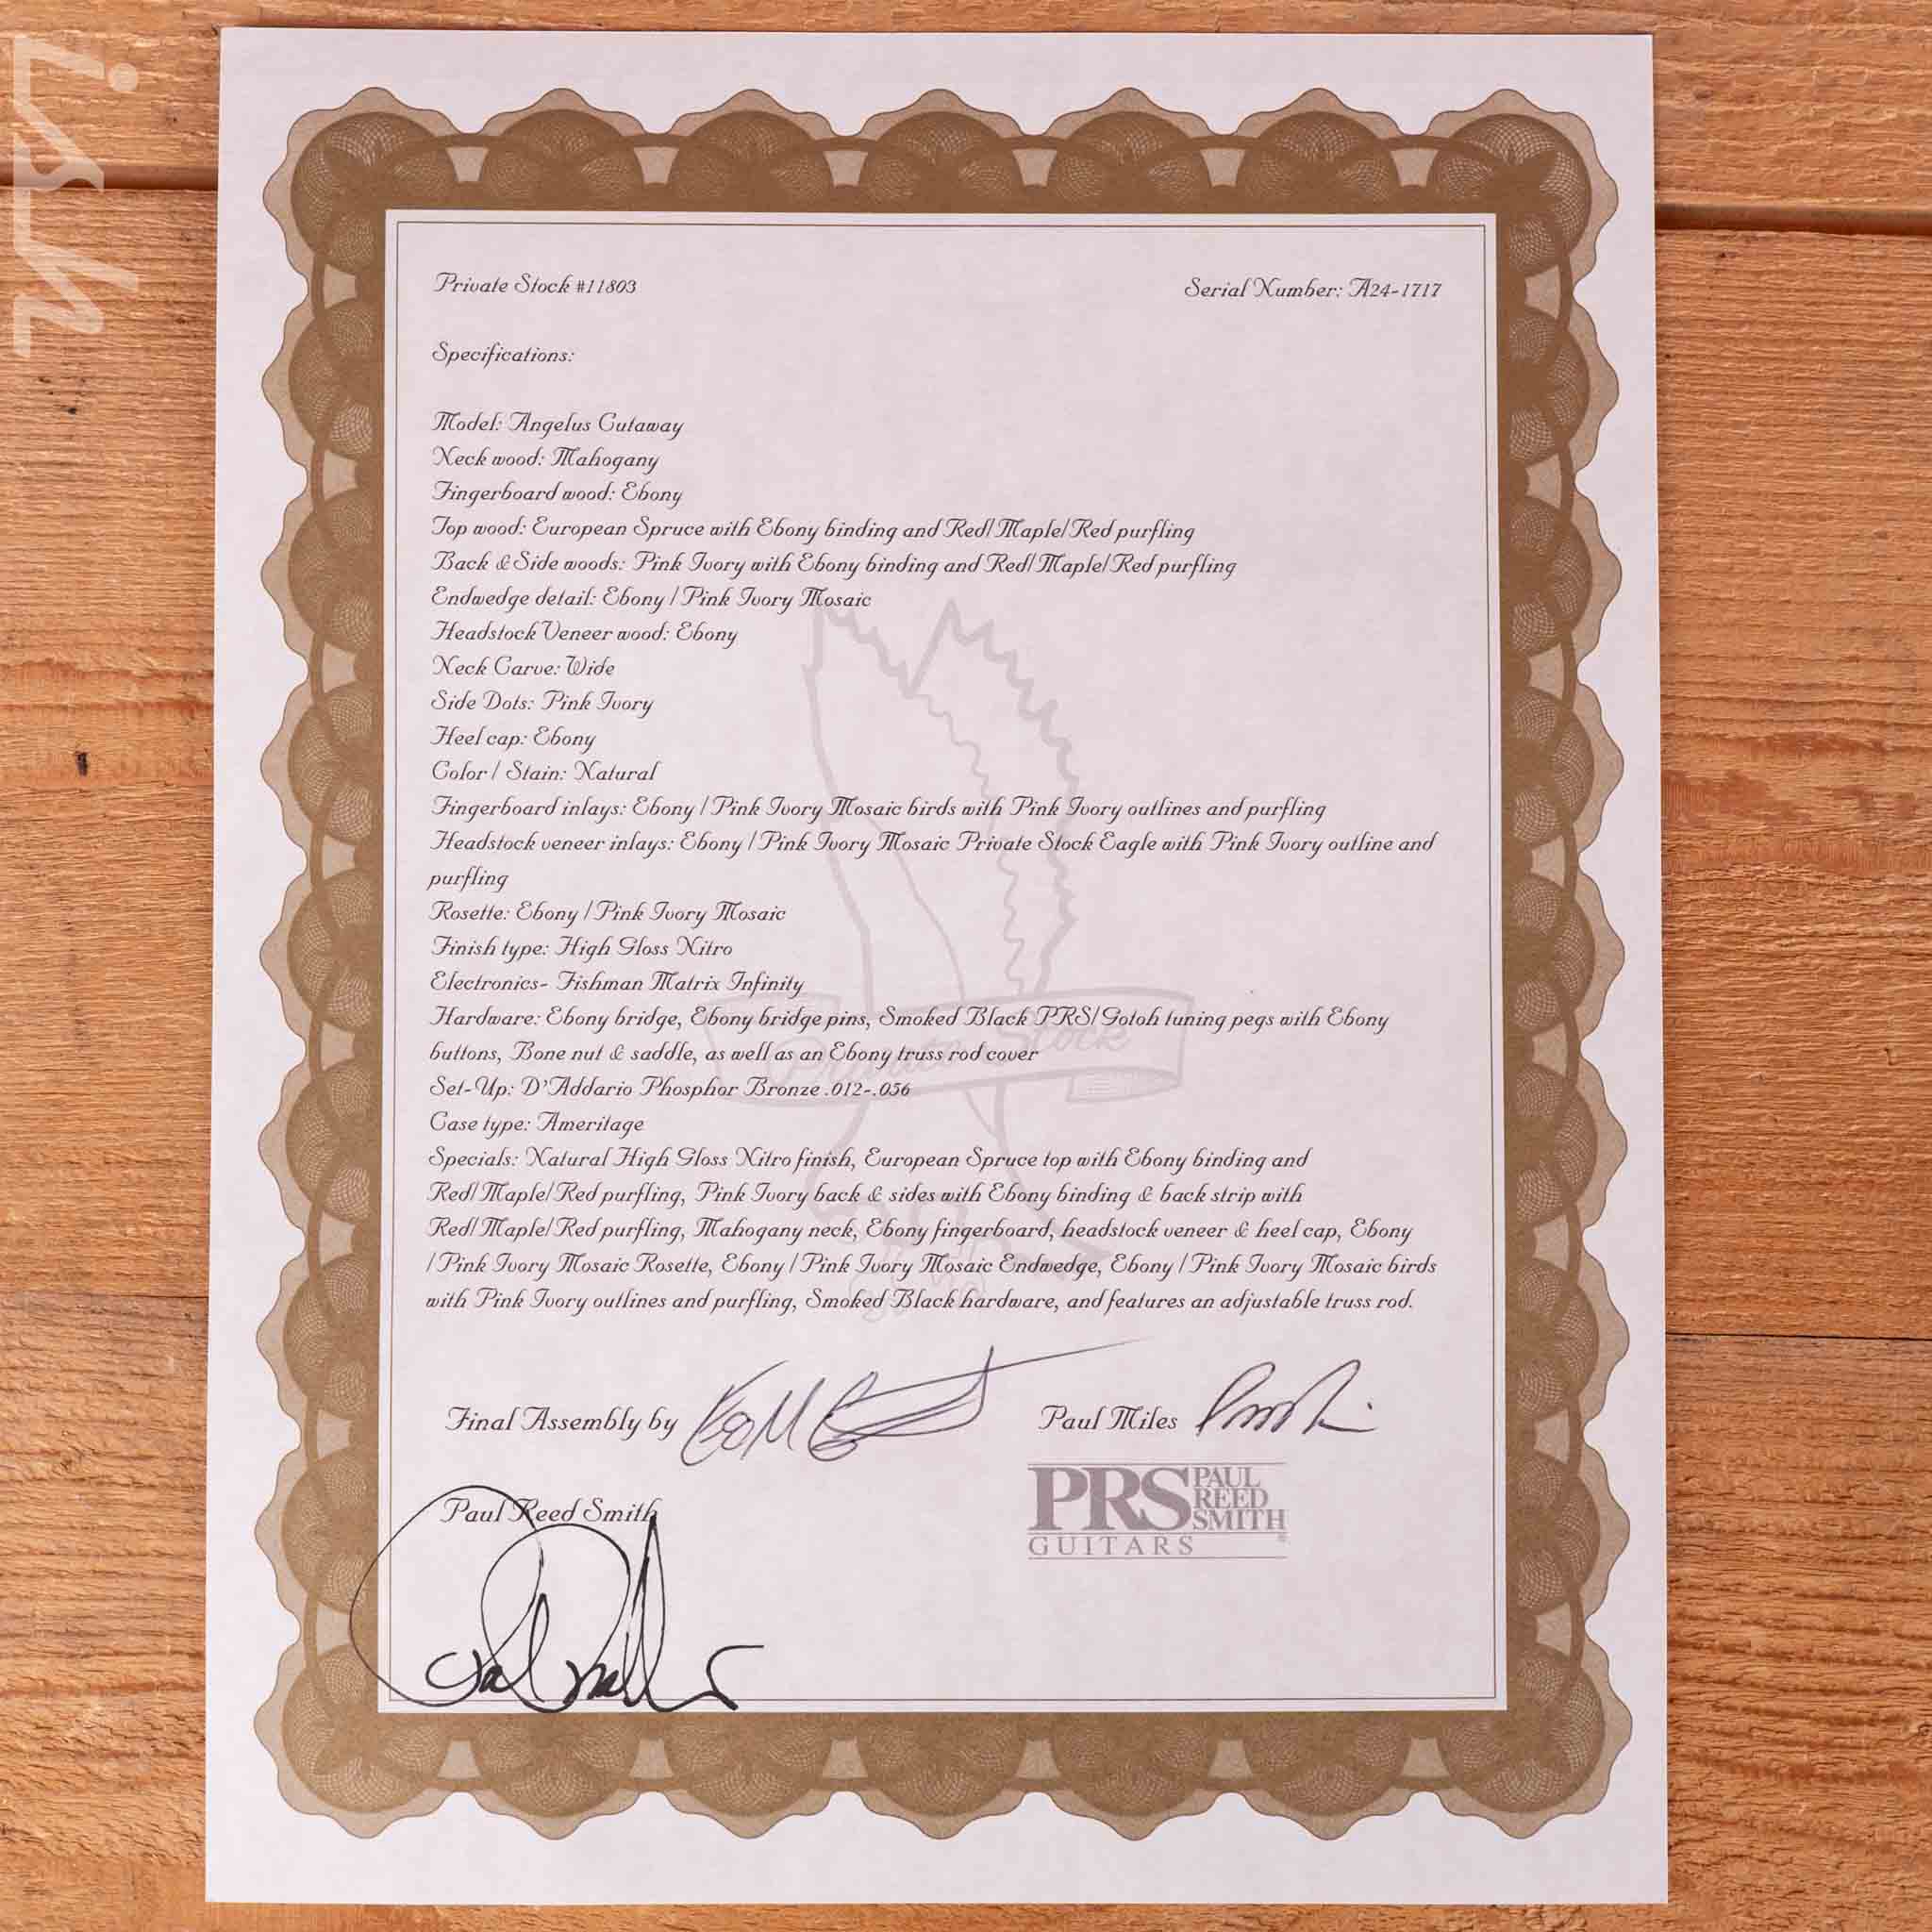 ish
Private Stock #11803
Serial Number: A24-1717
Specifications:
Model: Angelus Cutaway
Neck wood: Mahogany
Fingerboard wood: Ebony
Top wood: European Spruce with Ebony binding and Red/Maple/Red purfling
Back & Side woods: Pink Ivory with Ebony binding and Red/Maple/Red purfling
Endwedge detail: Ebony / Pink Ivory Mosaic
Headstock Veneer wood: Ebony
Neck Carve: Wide
Side Dots: Pink Ivory
Heel cap: Ebony
Color / Stain: Natural
Fingerboard inlays: Ebony / Pink Ivory Mosaic birds with Pink Ivory outlines and purfling
Headstock veneer inlays: Ebony / Pink Ivory Mosaic Private Stock Eagle with Pink Ivory outline and
purfling
Rosette: Ebony / Pink Ivory Mosaic
Finish type: High Gloss Nitro
Electronics- Fishman Matrix Infinity
Hardware: Ebony bridge, Ebony bridge pins, Smoked Black PRS/Gotoh tuning pegs with Ebony
buttons, Bone nut & saddle, as well as an Ebony truss rod cover
Private Stock
Set-Up: D'Addario Phosphor Bronze .012-.056
Case type: Ameritage
Specials: Natural High Gloss Nitro finish, European Spruce top with Ebony binding and
Red/Maple/Red purfling, Pink Ivory back & sides with Ebony binding & back strip with
Red/Maple/Red purfling, Mahogany neck, Ebony fingerboard, headstock veneer & heel cap, Ebony
/ Pink Ivory Mosaic Rosette, Ebony / Pink Ivory Mosaic Endwedge, Ebony / Pink Ivory Mosaic birds
with Pink Ivory outlines and purfling, Smoked Black hardware, and features an adjustable truss rod.
Final Assembly by
Paul Miles
Paul Reed Smith
PRS PAUL REED SMITH
GUITARS